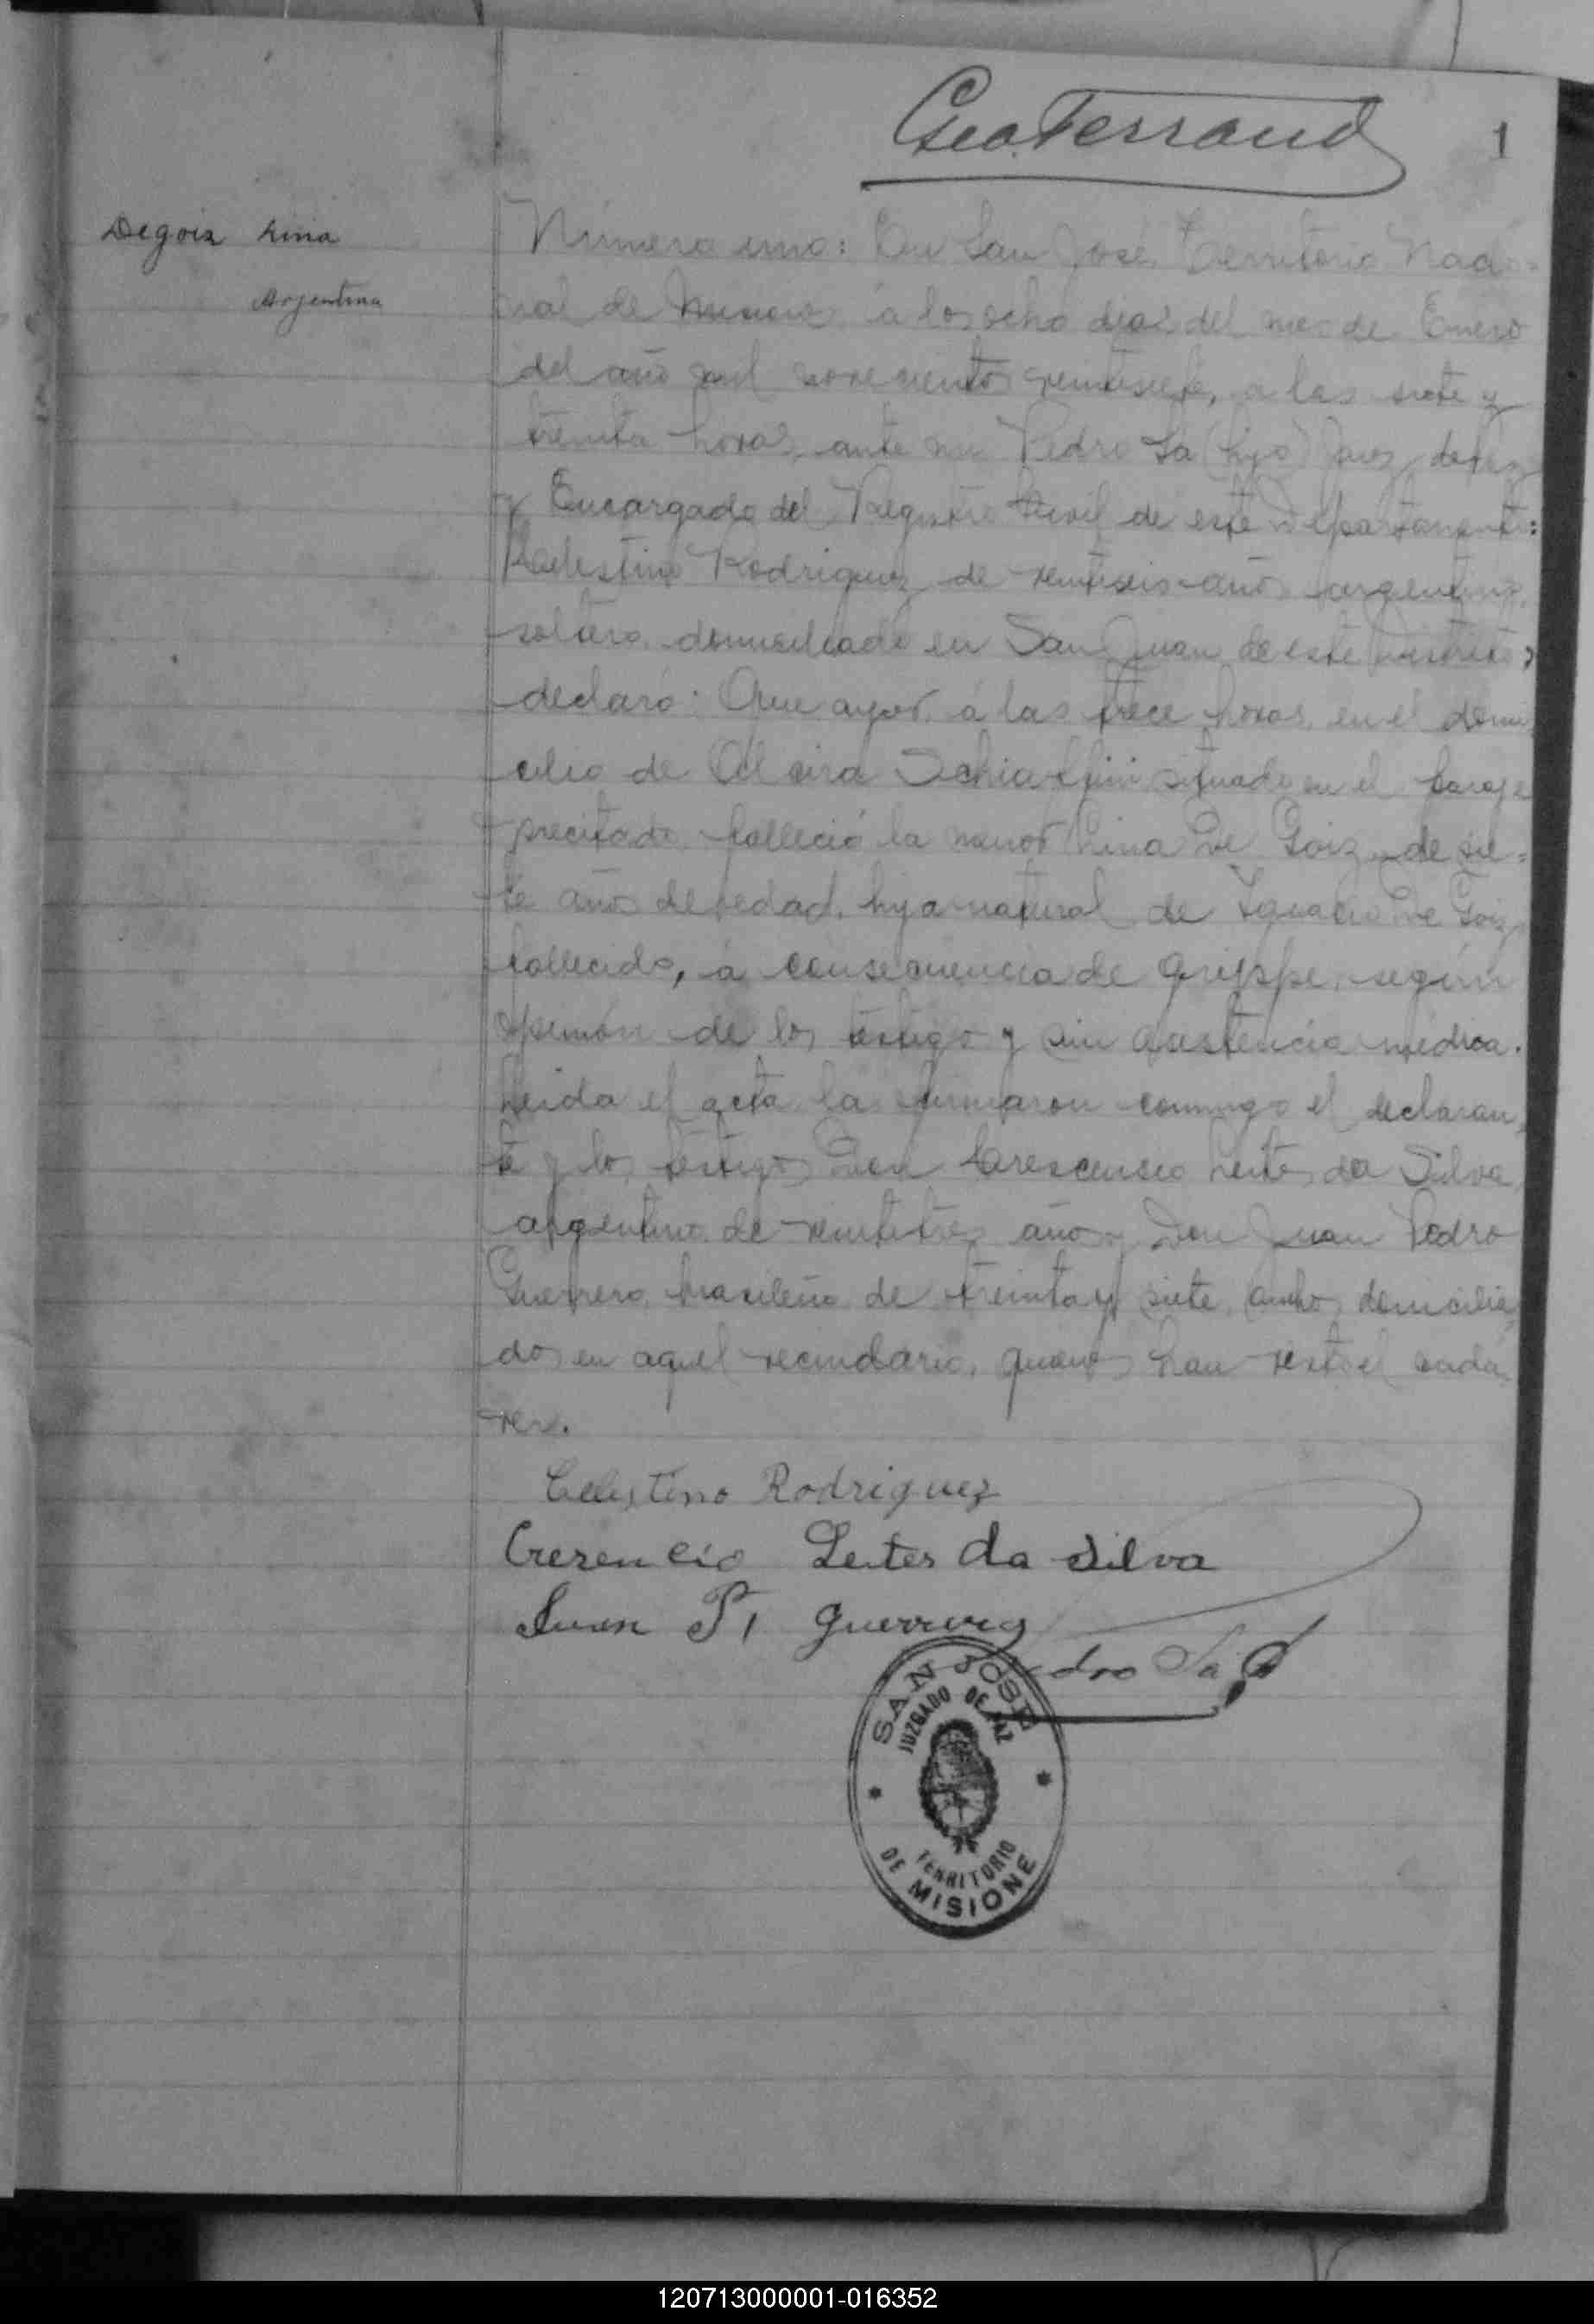 Geo. Ferrand
1
Degoiz Lina
Argentina
Número uno: En San José, Territorio Nacio=
nal de Misiones, á los ocho dias del mes de Enero
del año mil novecientos veintisiete, a las siete y
treinta horas, ante mi Pedro Sa (hijo) Juez de Paz
y Encargado del Registro Civil de este Departamento:
Celestino Rodriguez de veintiseis años argentino,
soltero, domiciliado en San Juan de este Distrito,
declaró: Que ayer, á las trece horas, en el domi
cilio de Alcira Schiaffini situado en el paraje
precitado falleció la menor Lina De Goiz, de sie=
te años de edad, hija natural de Ignacio De Goiz,
fallecido, á consecuencia de grippe, según
opinión de los testigos y sin asistencia médica.
Leida el acta la firmaron conmigo el declaran
te y los testigos Don Crescencio Leites da Silva,
argentino de veintitres años y Don Juan Pedro
Guerrero, brasileño de treinta y siete, ambos domicilia
dos en aquel vecindario, quienes han visto el cadá
ver.
Celestino Rodriguez
Cresencio Leites da Silva
Juan P. Guerrero
Pedro Sá
SAN JOSE
JUZGADO DE PAZ
TERRITORIO
DE MISIONE
120713000001-016352